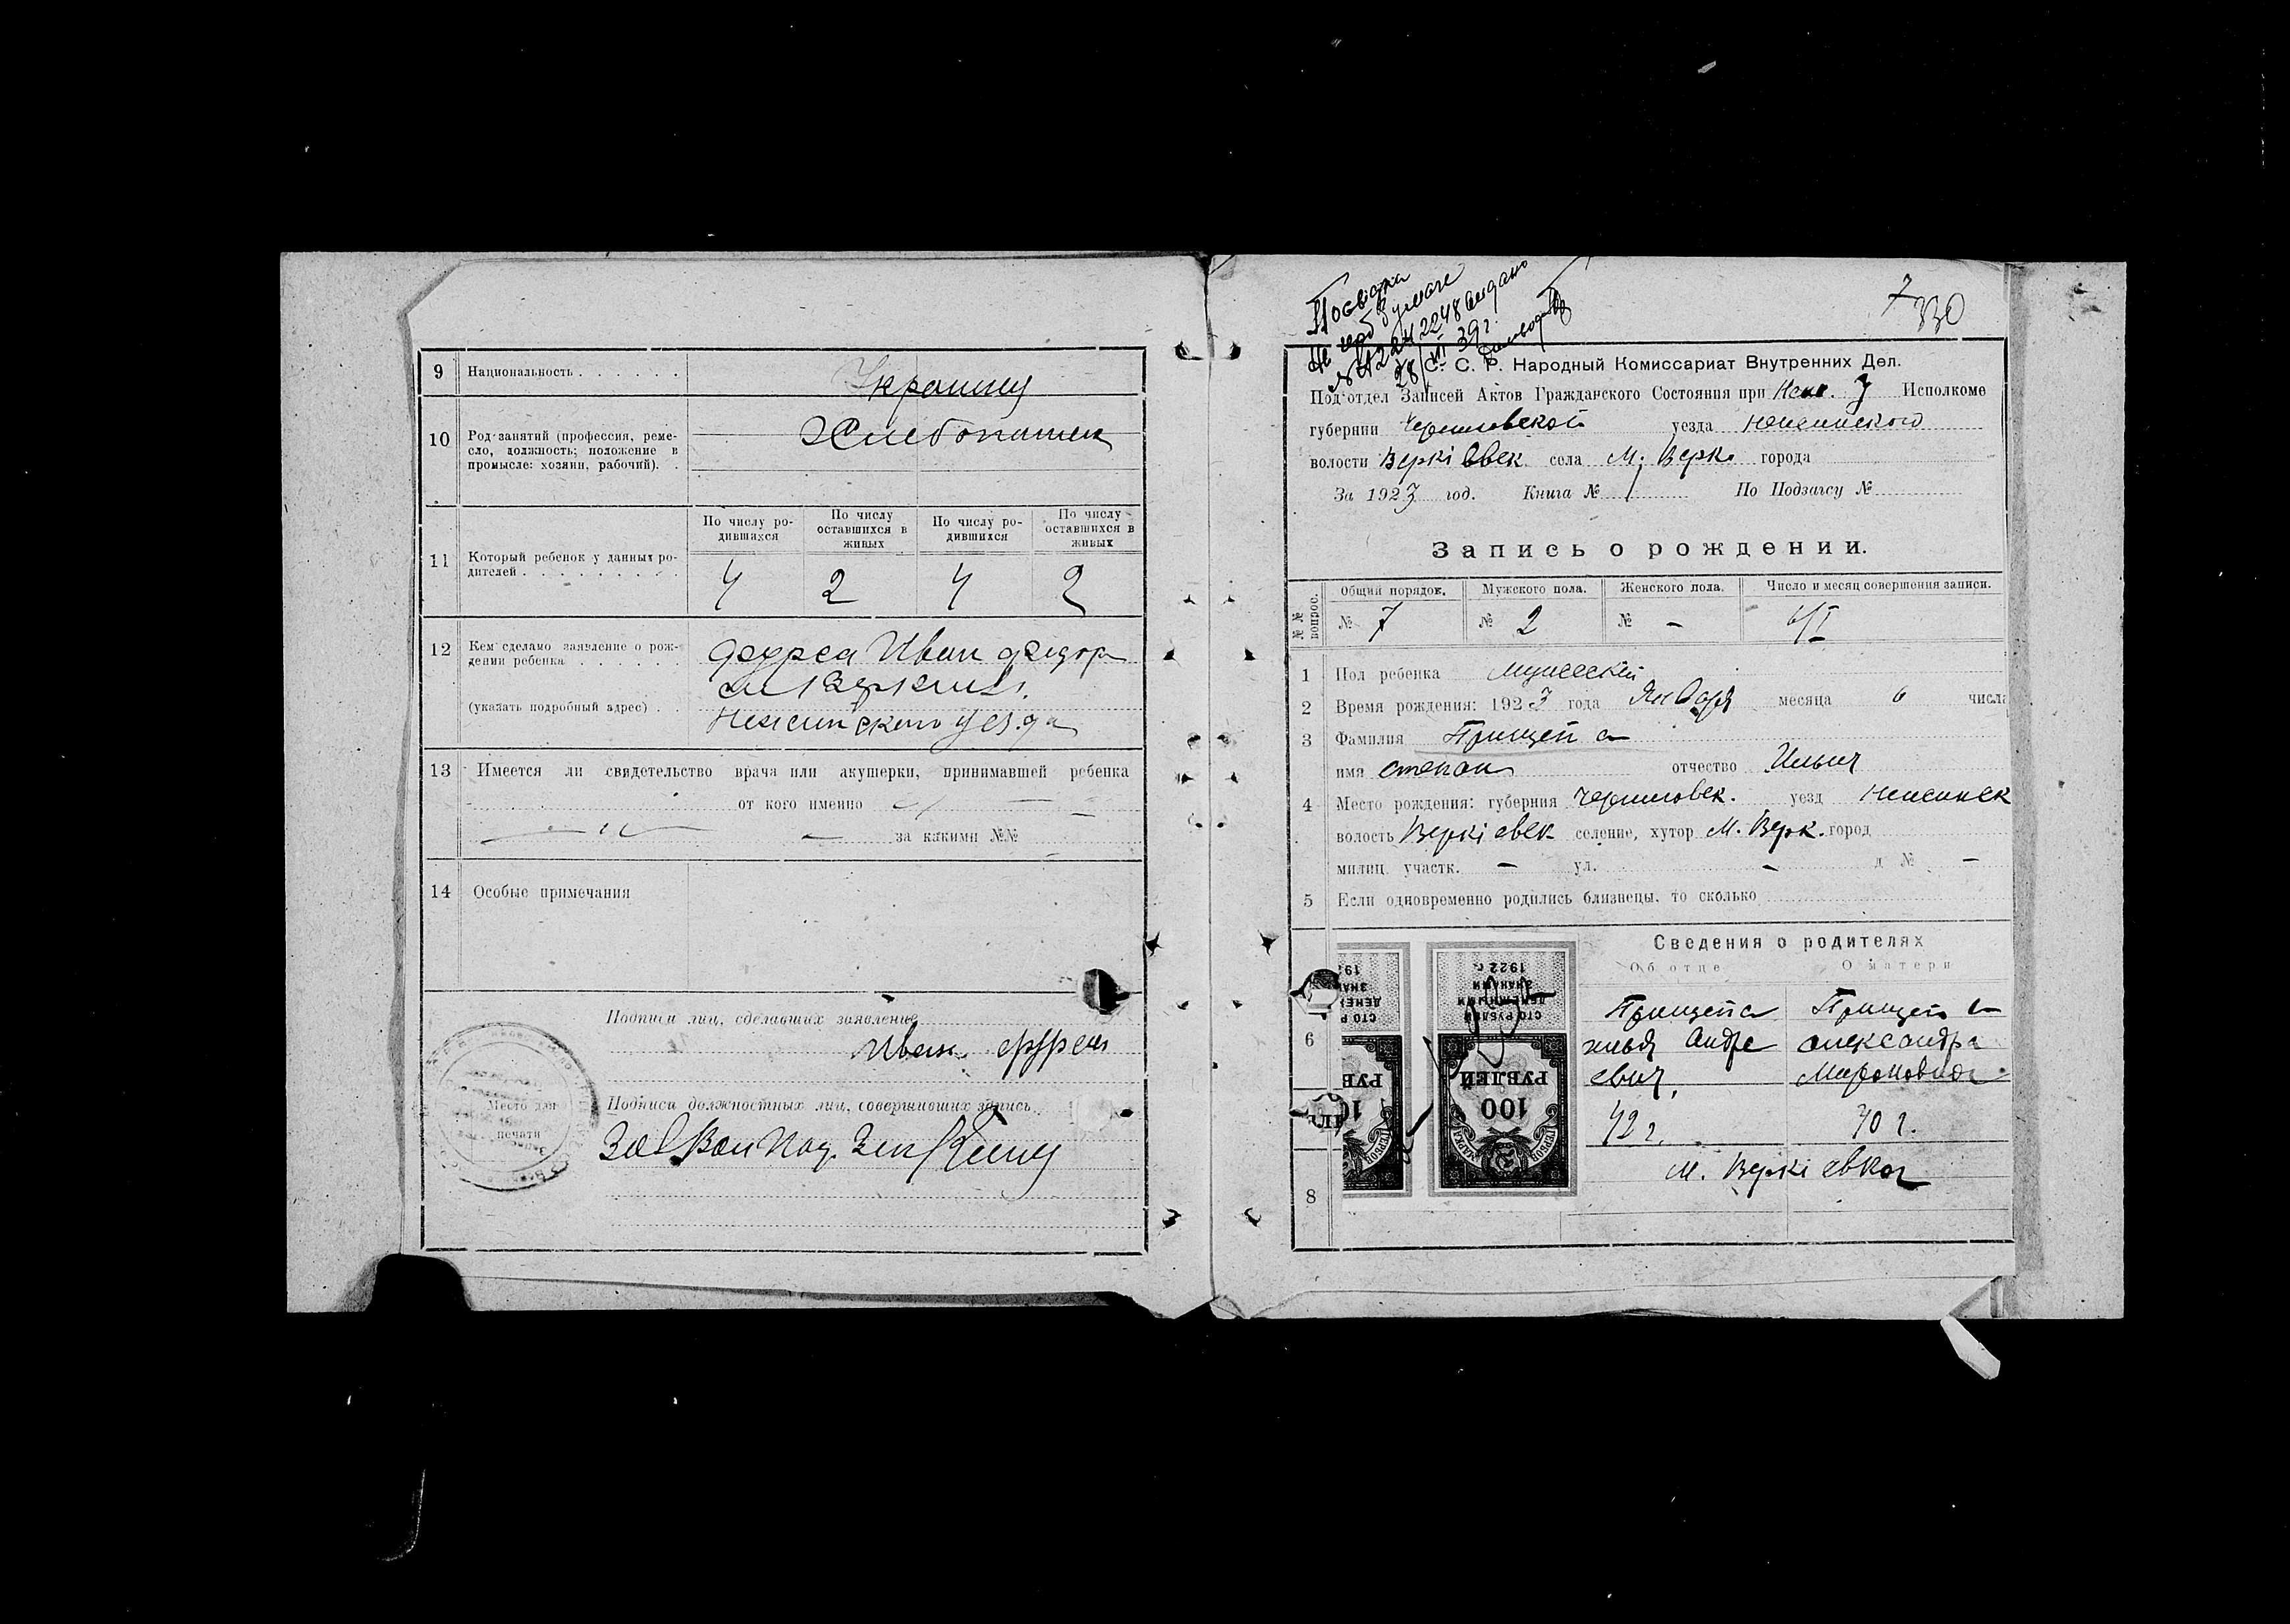 9 Национальность . . . . . .
Украинц
10 Род занятий (профессия, реме-
сло, должность; положение в
промысле: хозяин, рабочий). .
Хлебопашец
По числу ро-
дившихся
По числу
оставшихся в
живых
По числу ро-
дившихся
По числу
оставшихся в
живых
11 Который ребенок у данных ро-
дителей . . . . . . . . .
4 2 4 2
12 Кем сделано заявление о рож-
дении ребенка . . . . . .
Иван
(указать подробный адрес) . .
Нежинского уезда
13 Имеется ли свидетельство врача или акушерки, принимавшей ребенка
от кого именно
за какими №№
14 Особые примечания
Подписи лиц, сделавших заявление
Иван
Подписи должностных лиц, совершивших запись
Место для
печати
7
330
28/III 39 г.
С. С. Р. Народный Комиссариат Внутренних Дел.
Подотдел Записей Актов Гражданского Состояния при Исполкоме
губернии Черниговской уезда Нежинского
волости Веркіевск. села М. Верк. города
За 1923 год. Книга № По Подзагсу №
Запись о рождении.
№№ вопрос.
Общий порядок. Мужского пола. Женского пола. Число и месяц совершения записи.
№ 7 № 2 № –
1 Пол ребенка Мужеский
2 Время рождения: 1923 года Января месяца 6 числа
3 Фамилия Прищепа
имя Степан отчество Ильич
4 Место рождения: губерния Черниговск. уезд Нежинск
волость Веркіевск селение, хутор М. Верк. город
милиц. участк. – ул. – д № –
5 Если одновременно родились близнецы, то сколько
Сведения о родителях
Об отце О матери
6
Прищепа Прищепа
Илья Андре Александра
евич, Мироновна
42 г. 40 г.
8
М. Веркіевка
1922 г.
ЗНАКАМИ
ДЕНЕЖНЫМИ
СТО РУБЛЕЙ
РУБЛЕЙ
100
ГЕРБОВ МАРКА